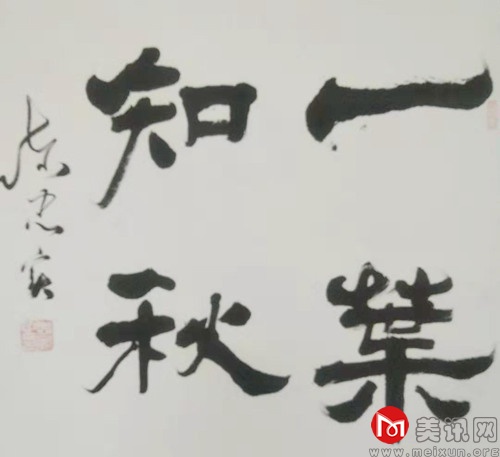 一葉
知秋
陈忠实
美讯网
www.meixun.org